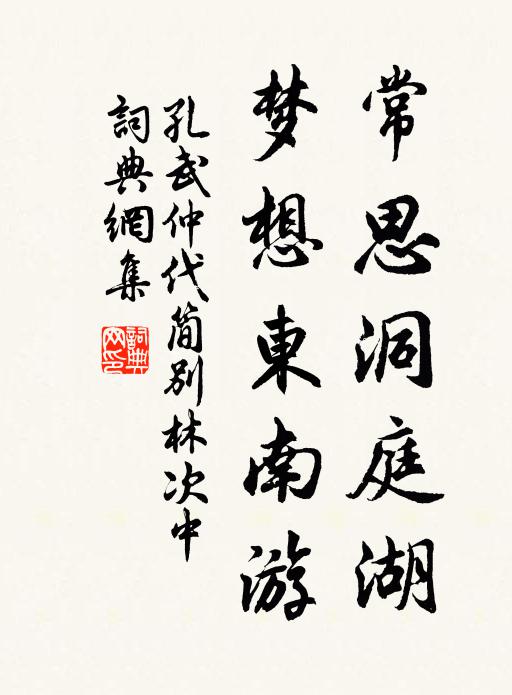 常思洞庭湖
梦想東南游
孔武仲代简别林次中
詞典網集
詞典网印